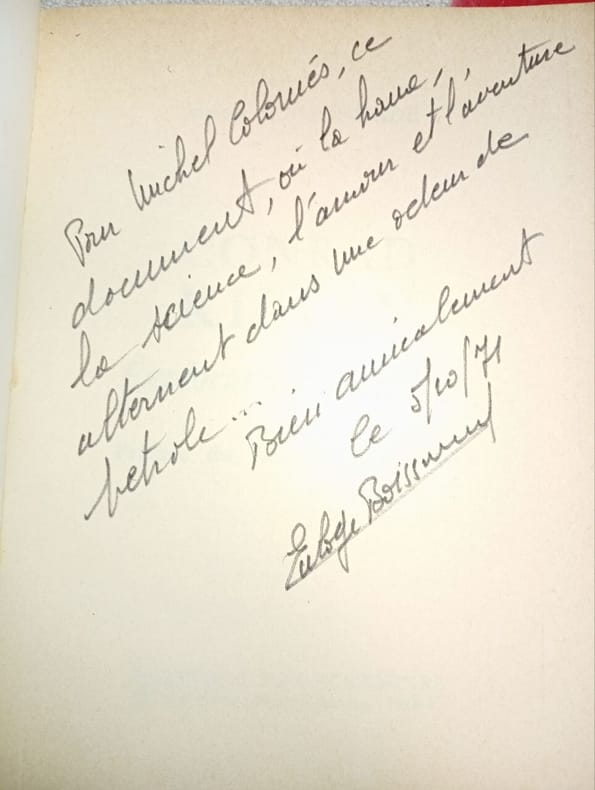 Pour Michel Colomès, ce
document, où la haine,
la science, l'amour et l'aventure
alternent dans une odeur de
petrole...
Bien amicalement
le 5/10/71
Euloge Boissonnad